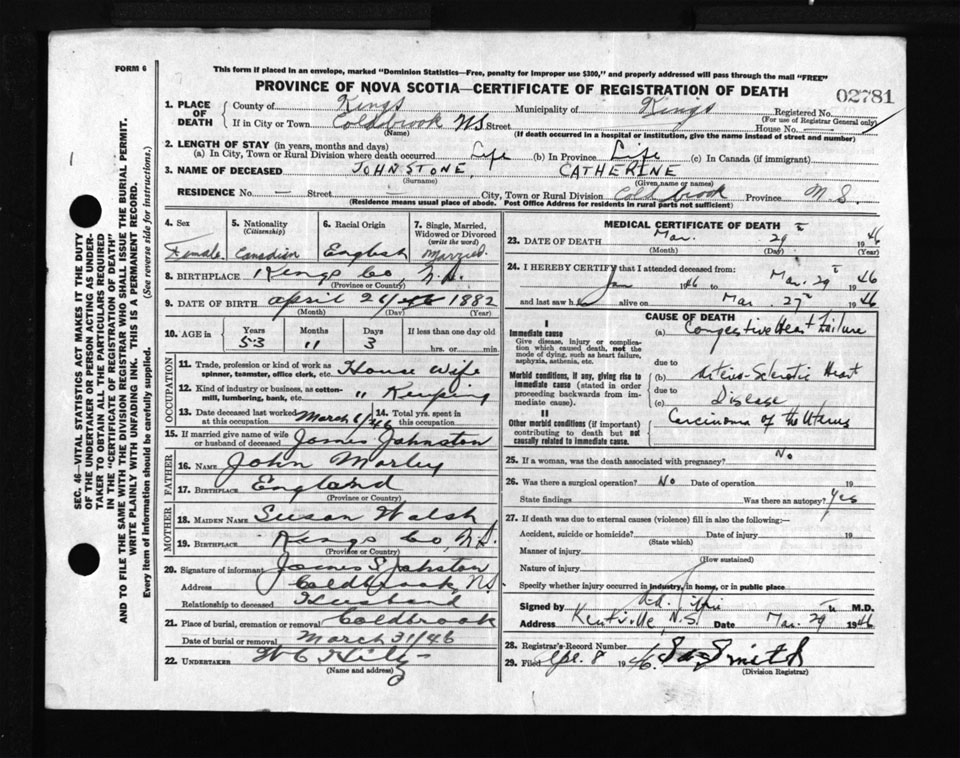 FORM 6
This form if placed in an envelope, marked "Dominion Statistics—Free, penalty for improper use $300," and properly addressed will pass through the mail "FREE"
PROVINCE OF NOVA SCOTIA—CERTIFICATE OF REGISTRATION OF DEATH
02781
1. PLACE OF DEATH
County of Kings Municipality of Kings Registered No.
(For use of Registrar General only)
If in City or Town Coldbrook NS Street House No. —
(Name) (If death occurred in a hospital or institution, give the name instead of street and number)
2. LENGTH OF STAY (in years, months and days)
(a) In City, Town or Rural Division where death occurred Life (b) In Province Life (c) In Canada (if immigrant)
3. NAME OF DECEASED JOHNSTONE, CATHERINE
(Surname) (Given name or names)
RESIDENCE No. — Street City, Town or Rural Division Coldbrook Province N.S.
(Residence means usual place of abode. Post Office Address for residents in rural parts not sufficient)
4. Sex
Female
5. Nationality
(Citizenship)
Canadian
6. Racial Origin
English
7. Single, Married, Widowed or Divorced
(write the word)
Married
8. BIRTHPLACE Kings Co, N.S.
(Province or Country)
9. DATE OF BIRTH April 26 1882
(Month) (Day) (Year)
10. AGE in
Years Months Days If less than one day old
53 11 3 hrs. or min.
OCCUPATION
11. Trade, profession or kind of work as spinner, teamster, office clerk, etc. House Wife
12. Kind of industry or business, as cotton-mill, lumbering, bank, etc. " Keeping
13. Date deceased last worked at this occupation March 6/46
14. Total yrs. spent in this occupation
15. If married give name of wife or husband of deceased James Johnston
FATHER
16. NAME John Morley
17. BIRTHPLACE England
(Province or Country)
MOTHER
18. MAIDEN NAME Susan Walsh
19. BIRTHPLACE Kings Co, N.S.
(Province or Country)
20. Signature of informant James S Johston
Address Coldbrook, NS.
Relationship to deceased Husband
21. Place of burial, cremation or removal Coldbrook
Date of burial or removal March 31/46
22. UNDERTAKER W C
(Name and address)
MEDICAL CERTIFICATE OF DEATH
23. DATE OF DEATH Mar. 29 1946
(Month) (Day) (Year)
24. I HEREBY CERTIFY that I attended deceased from:
Jan 1946 to Mar. 29 1946
and last saw h alive on Mar. 27 1946
CAUSE OF DEATH
I
Immediate cause
Give disease, injury or complication which caused death, not the mode of dying, such as heart failure, asphyxia, asthenia, etc.
(a) Congestive Heart Failure
due to
Morbid conditions, if any, giving rise to immediate cause (stated in order proceeding backwards from immediate cause).
(b) Arterio-Sclerotic Heart
due to
(c) Disease
II
Other morbid conditions (if important) contributing to death but not causally related to immediate cause.
Carcinoma of the Uterus
25. If a woman, was the death associated with pregnancy? No
26. Was there a surgical operation? No Date of operation 19
State findings Was there an autopsy? Yes
27. If death was due to external causes (violence) fill in also the following:—
Accident, suicide or homicide? Date of injury 19
(State which)
Manner of injury
(How sustained)
Nature of injury
Specify whether injury occurred in industry, in home, or in public place
Signed by M.D.
Address Kentville, N.S. Date Mar. 29 1946
28. Registrar's Record Number
29. Filed Apl. 8 1946 Smith
(Division Registrar)
SEC. 46—VITAL STATISTICS ACT MAKES IT THE DUTY
OF THE UNDERTAKER OR PERSON ACTING AS UNDER-
TAKER TO OBTAIN ALL THE PARTICULARS REQUIRED
IN THE "CERTIFICATE OF REGISTRATION OF DEATH"
AND TO FILE THE SAME WITH THE DIVISION REGISTRAR WHO SHALL ISSUE THE BURIAL PERMIT.
WRITE PLAINLY WITH UNFADING INK. THIS IS A PERMANENT RECORD.
Every item of information should be carefully supplied. (See reverse side for instructions.)